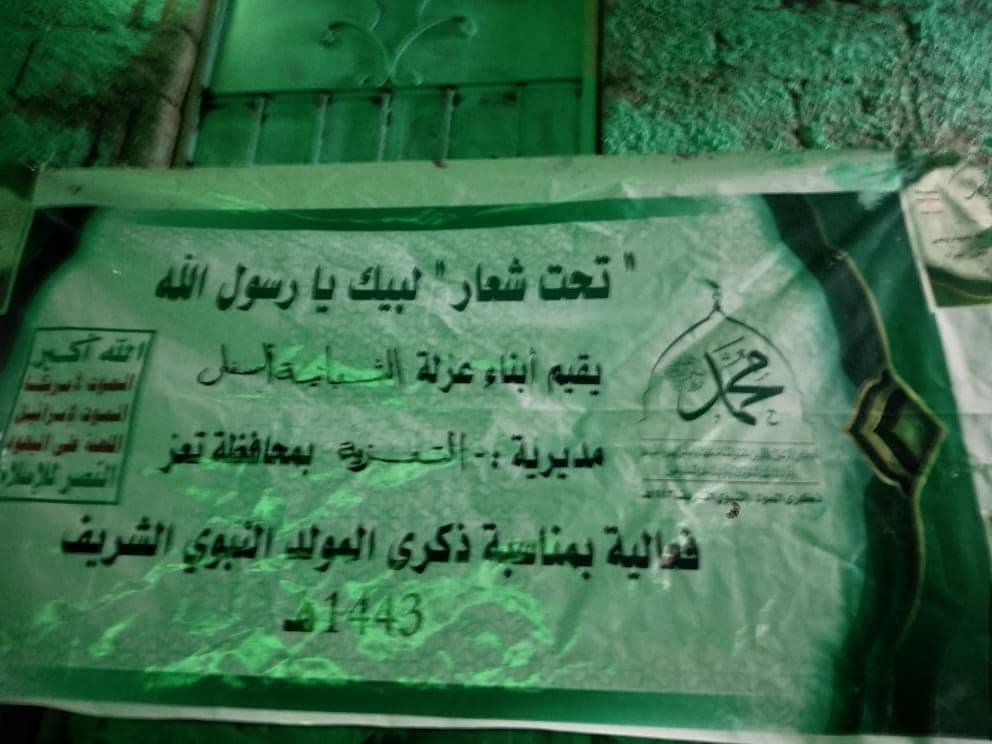 تحت شعار " لبيك يا رسول الله "
يقيم أبناء عزلة الشعبانية أسفل
مديرية :- التعزية بمحافظة تعز
فعالية بمناسبة ذكرى المولد النبوي الشريف
1443هـ
محمد
الله أكبر
الموت لأمريكا
الموت لإسرائيل
اللعنة على اليهود
النصر للإسلام